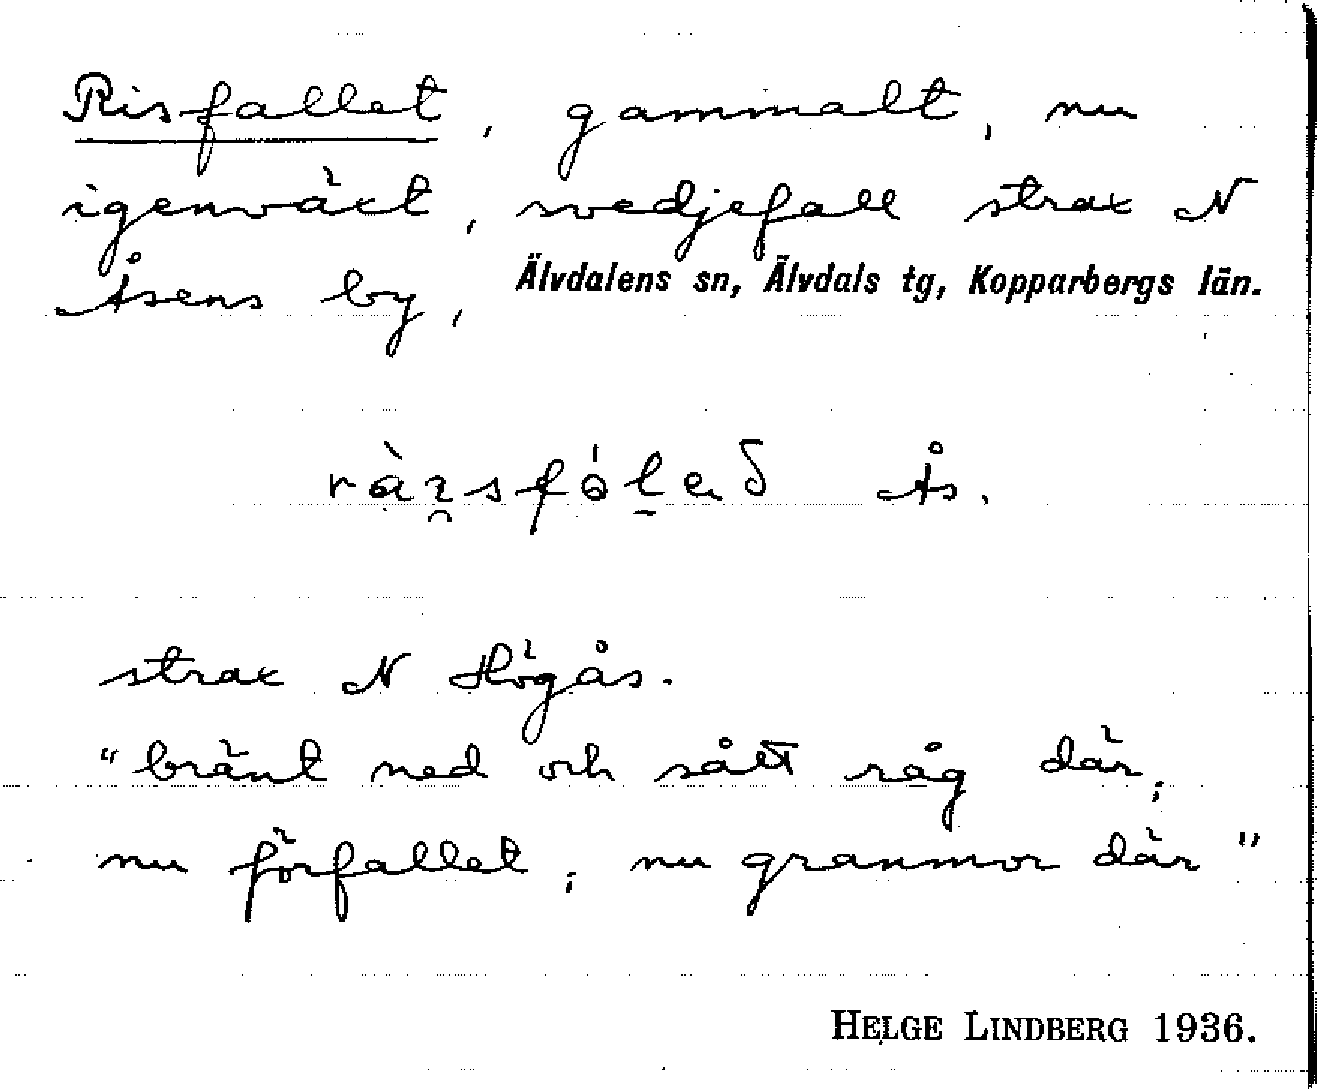 Risfallet, gammalt, nu
igenväxt, svedjefall strax N
Åsens by, Älvdalens sn, Älvdals tg, Kopparbergs län.
Ås.
strax N Högås.
"bränt ned och sått råg där;
nu förfallet; nu granmor där"
HELGE LINDBERG 1936.